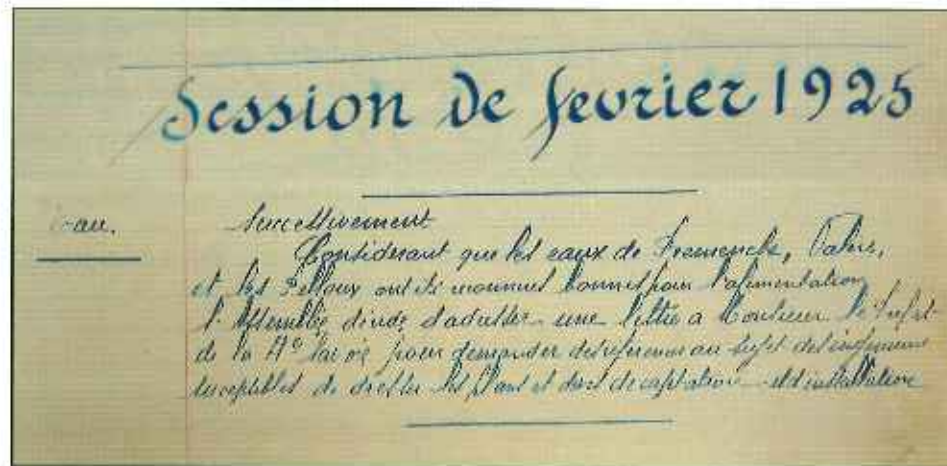 Session de fevrier 1925
Eau.
Successivement
Considerant que les eaux de
et les ont été reconnues bonnes pour l'alimentation
l'Assemblée décide d'adresser une lettre a Monsieur le Préfet
de la Hte Savoie pour demander des références au sujet des ingénieurs
susceptibles de dresser les plans et devis de captation et d'installation